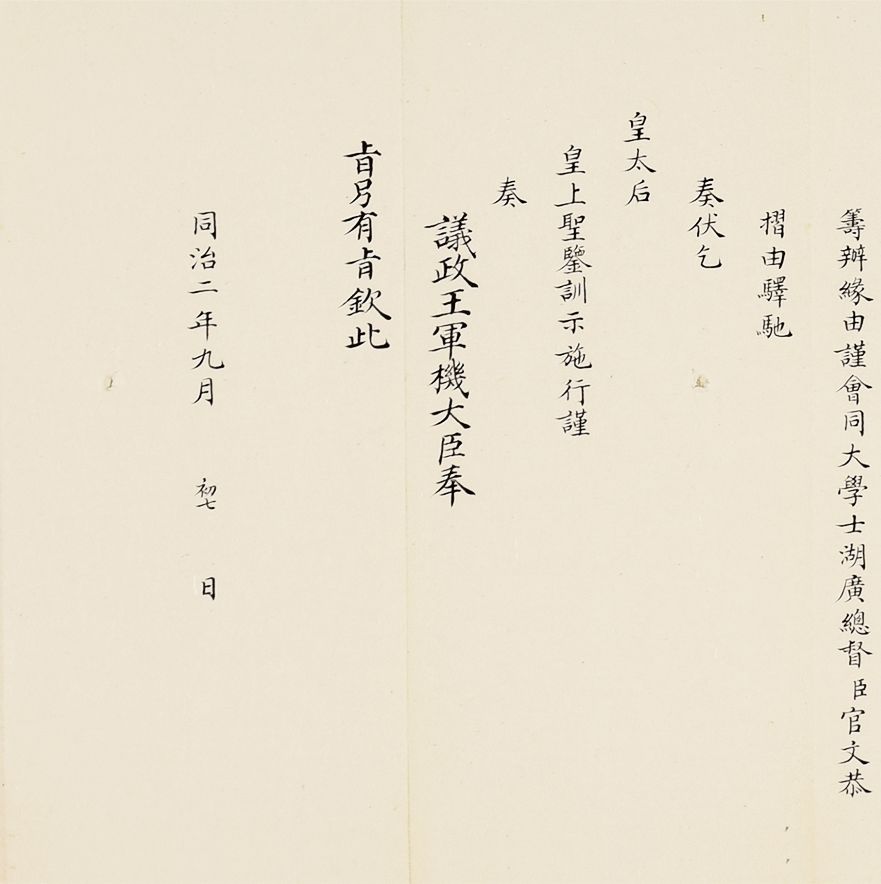 籌辦緣由謹會同大學士湖廣總督臣官文恭
摺由驛馳
奏伏乞
皇太后
皇上聖鑒訓示施行謹
奏
議政王軍機大臣奉
旨另有旨欽此
同治二年九月 初七 日